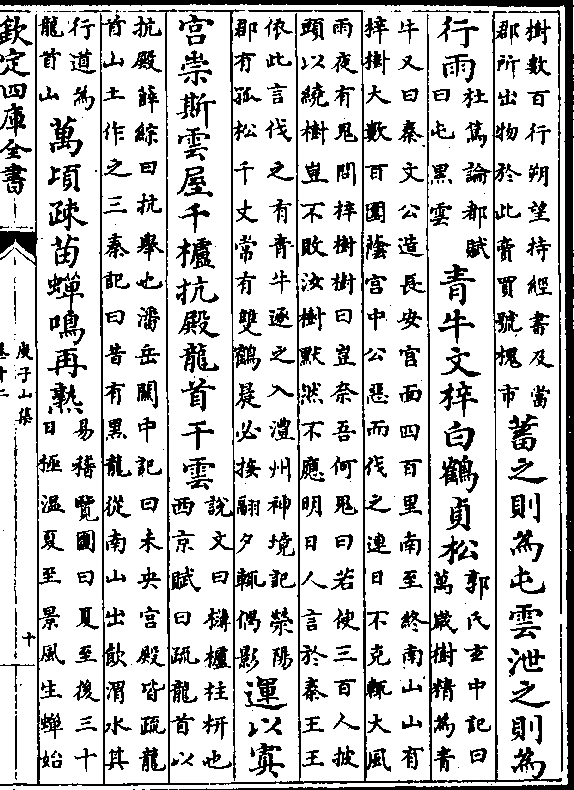 樹數百行朔望持經書及當
郡所出物於此賣買號槐市
蓄之則為屯雲泄之則為
行雨
杜篤論都賦
曰屯黑雲
青牛文梓白鶴貞松
郭氏玄中記曰
萬歲樹精為青
牛又曰秦文公造長安宫面四百里南至終南山山有
梓樹大數百圍蔭宫中公惡而伐之連日不克輒大風
雨夜有鬼問梓樹樹曰豈奈吾何鬼曰若使三百人披
頭以繞樹豈不敗汝樹默然不應明日人言於秦王王
依此言伐之有青牛逐之入澧州神境記滎陽
郡有孤松千丈常有雙鶴晨必接翮夕輒偶影
運以寘
宫崇斯雲屋千櫨抗殿龍首干雲
說文曰欂櫨柱枅也
西京賦曰疏龍首以
抗殿薛綜曰抗舉也潘岳關中記曰未央宫殿皆疏龍
首山土作之三秦記曰昔有黑龍從南山出飲渭水其
行道為
龍首山
萬頃疎苗蟬鳴再熟
易稽覽圖曰夏至後三十
日極溫夏至景風生蟬始
欽定四庫全書
庾子山集
卷十二
十